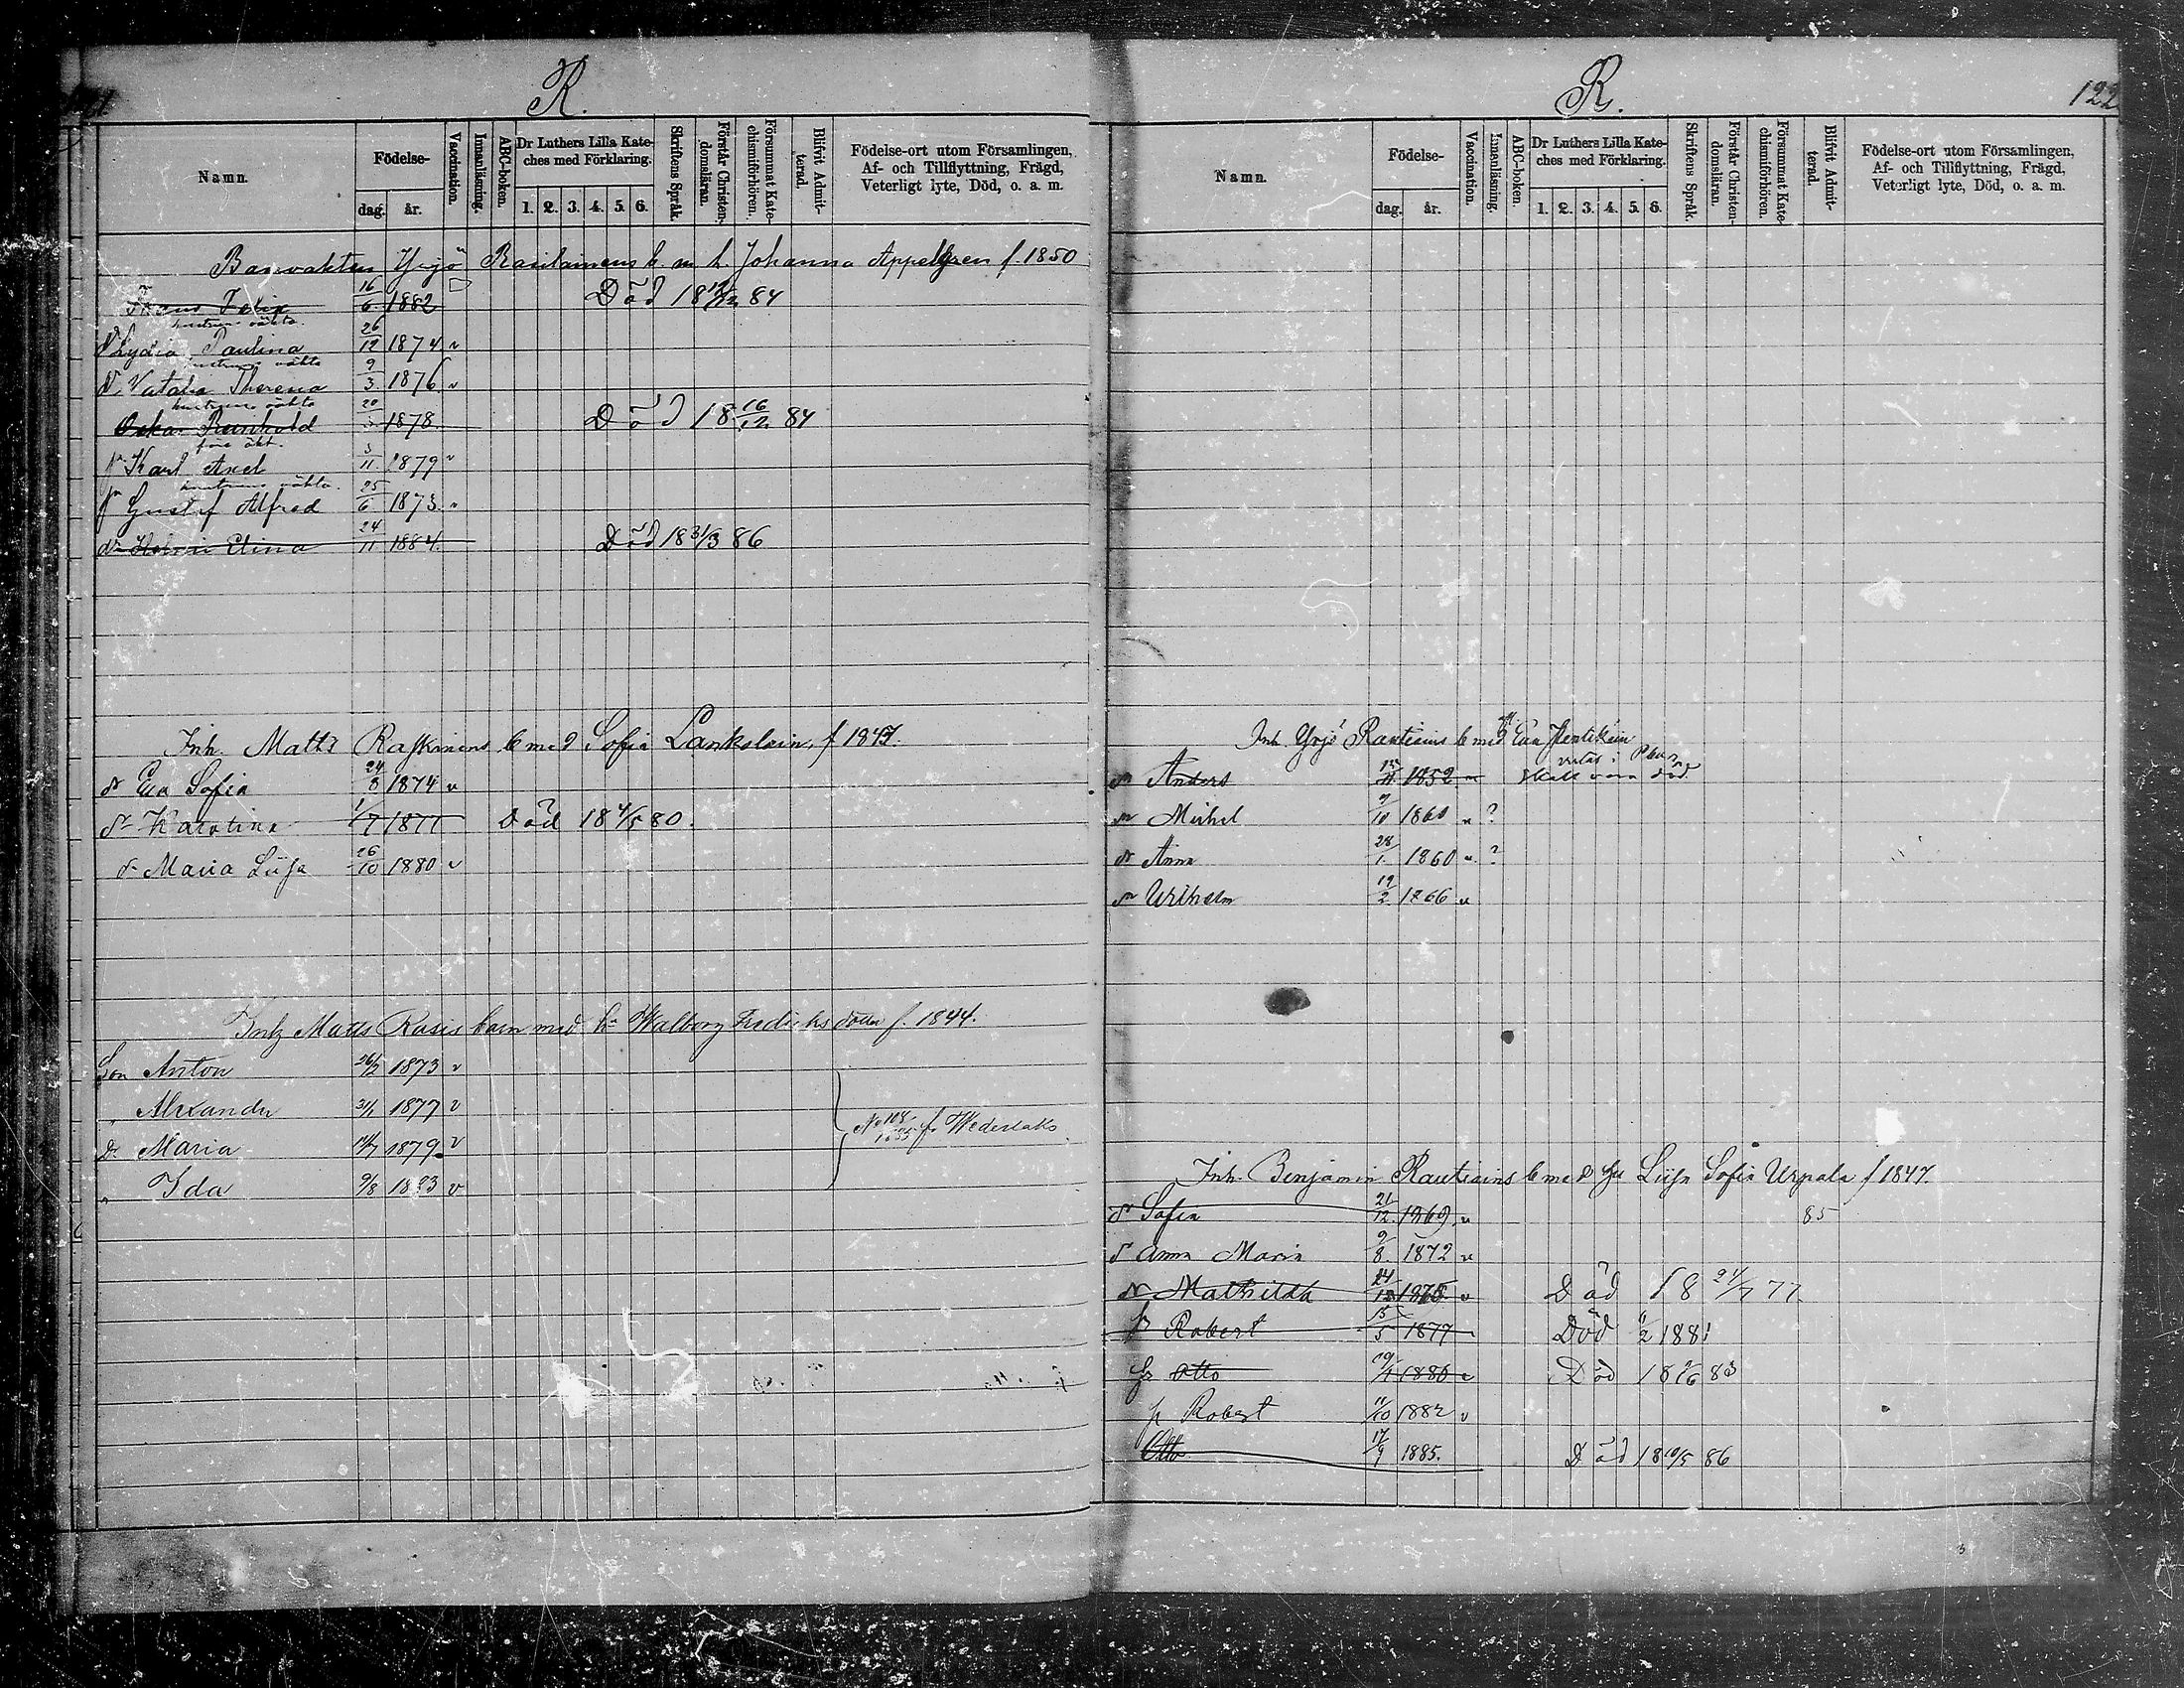 R.
Namn.
Födelse-
dag.
år.
Vaccination.
Innanläsning.
ABC-boken.
Dr Luthers Lilla Kate-
ches med Förklaring.
1. 2. 3. 4. 5. 6.
Skriftens Språk.
Förstår Christen-
domsläran.
Försummat Kate-
chismiförhören.
Blifvit Admit-
terad.
Födelse-ort utom Församlingen,
Af- och Tillflyttning, Frägd,
Veterligt lyte, Död, o. a. m.
Banvakten Yrjö Rasilainens b. m. h. Johanna Appelgren f. 1850
Felix 16/6 1882 Död 18 /12 84
hustruns oäkta
dr Lydia Paulina 26/12 1874 v
hustruns oäkta
dr Natalia Theresia 9/3 1876 v
hustruns oäkta
Oskar Reinhold 20/ 1878 Död 18 16/12 84
före äkt.
sn Karl Axel 3/11 1879 v
hustruns oäkta
sn Gustaf Alfred 25/6 1873 v
dr Elina 24/11 1884. Död 18 31/3 86
Inh. Matts Raskinens b med Sofia Lankolain, f 1847.
dr Eva Sofia 24/8 1874 v
dr Karolina 1/7 1877 Död 18 4/5 80.
dr Maria Liisa 26/10 1880 v
Inh Matts Rasis barn med h. Walborg Fredriksdotter f. 1844.
Son Anton 26/2 1873 v
" Alexander 31/1 1877 v
Dr Maria 1879 v
" Ida 9/8 1883 v
No 104 1885 fr Wederlaks
R.
122
Namn.
Födelse-
dag.
år.
Vaccination.
Innanläsning.
ABC-boken.
Dr Luthers Lilla Kate-
ches med Förklaring.
1. 2. 3. 4. 5. 6.
Skriftens Språk.
Förstår Christen-
domsläran.
Försummat Kate-
chismiförhören.
Blifvit Admit-
terad.
Födelse-ort utom Församlingen,
Af- och Tillflyttning, Frägd,
Veterligt lyte, Död, o. a. m.
Inh. Yrjö Rautiains b med Eva Pentikäin
sn Anders 15/11 1852 v skall vara död
sn Mikel 9/10 1860 v ?
dr Anna 28/1 1860 v ?
sn Wilhelm 19/2 1866 v
Inh. Benjamin Rautiains b med hu Liisa Sofia Urpala f 1847.
dr Sofia 21/12 1869 v 85
dr Anna Maria 9/8 1872 v
dr Mathilda 24/12 1875 v Död 18 24/7 77
sn Robert 15/5 1877 Död 11/2 1881
sn Otto 19/4 1880 v Död 18 /6 83
sn Robert 11/10 1882 v
Otto 17/9 1885. Död 18 10/5 86